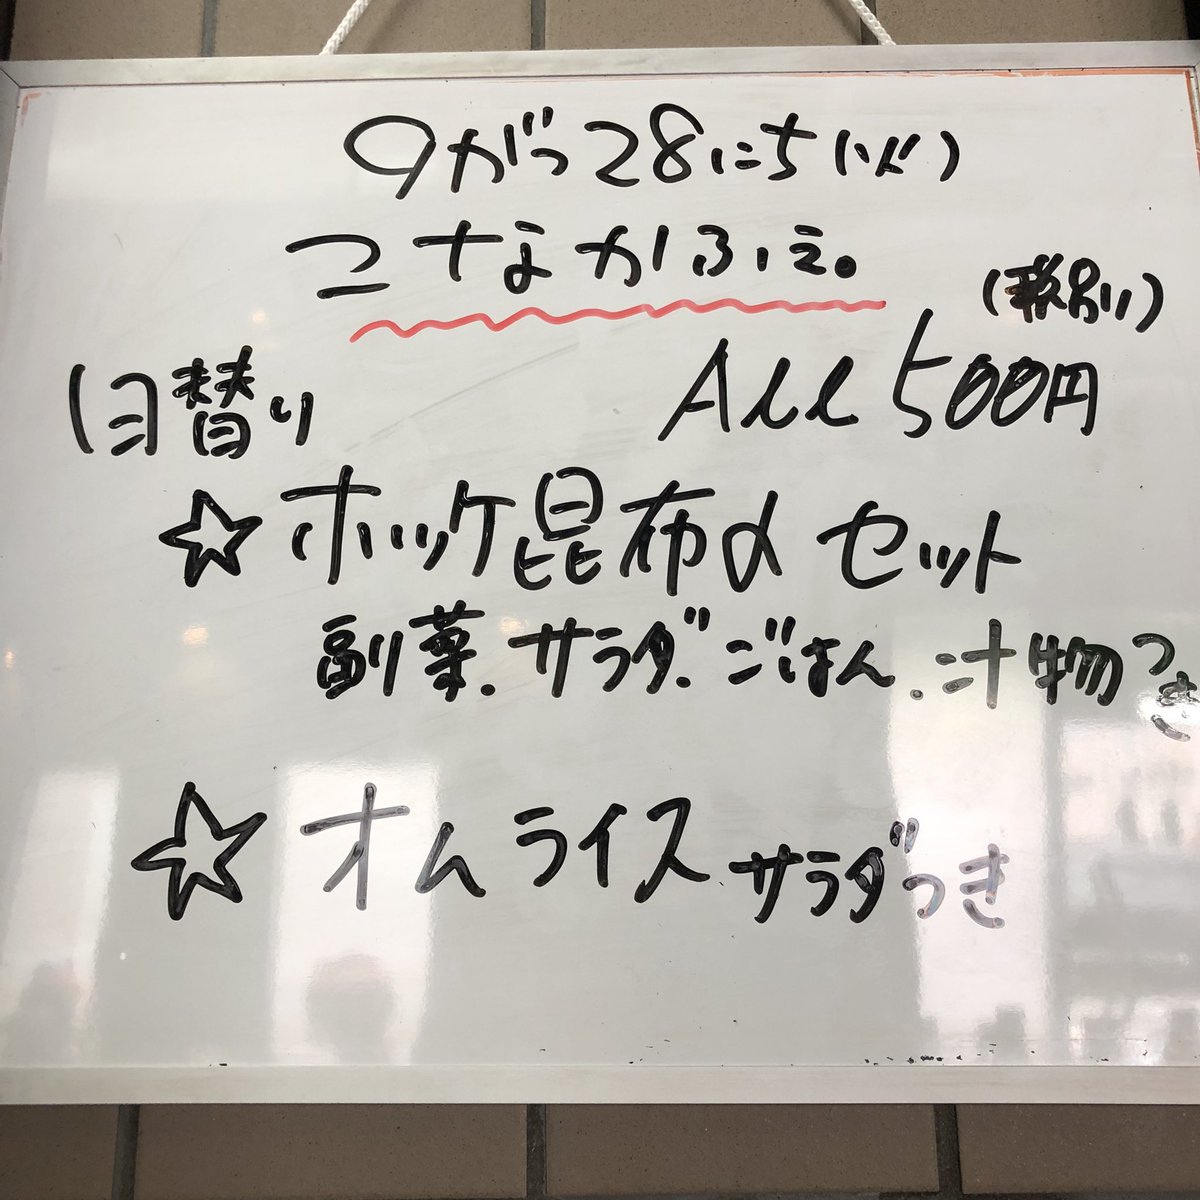 9がつ28にち(火)
こなかふぇ。
(税別)
日替り All 500円
☆ホッケ昆布〆セット
副菜.サラダ.ごはん.汁物つき
☆オムライスサラダつき